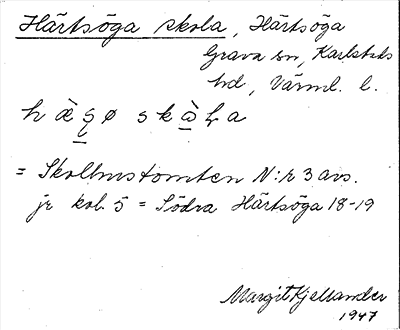 Härtsöga skola, Härtsöga
Grava sn, Karlstads
hd, Värml. l.
= Skolhustomten N:r 3 avs.
jr kol. 5 = Södra Härtsöga 18-19
Margit Kjellander
1947